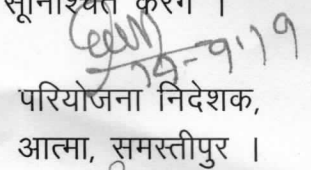 सुनिश्चित करेंगे ।
परियोजना निदेशक,
आत्मा, समस्तीपुर ।